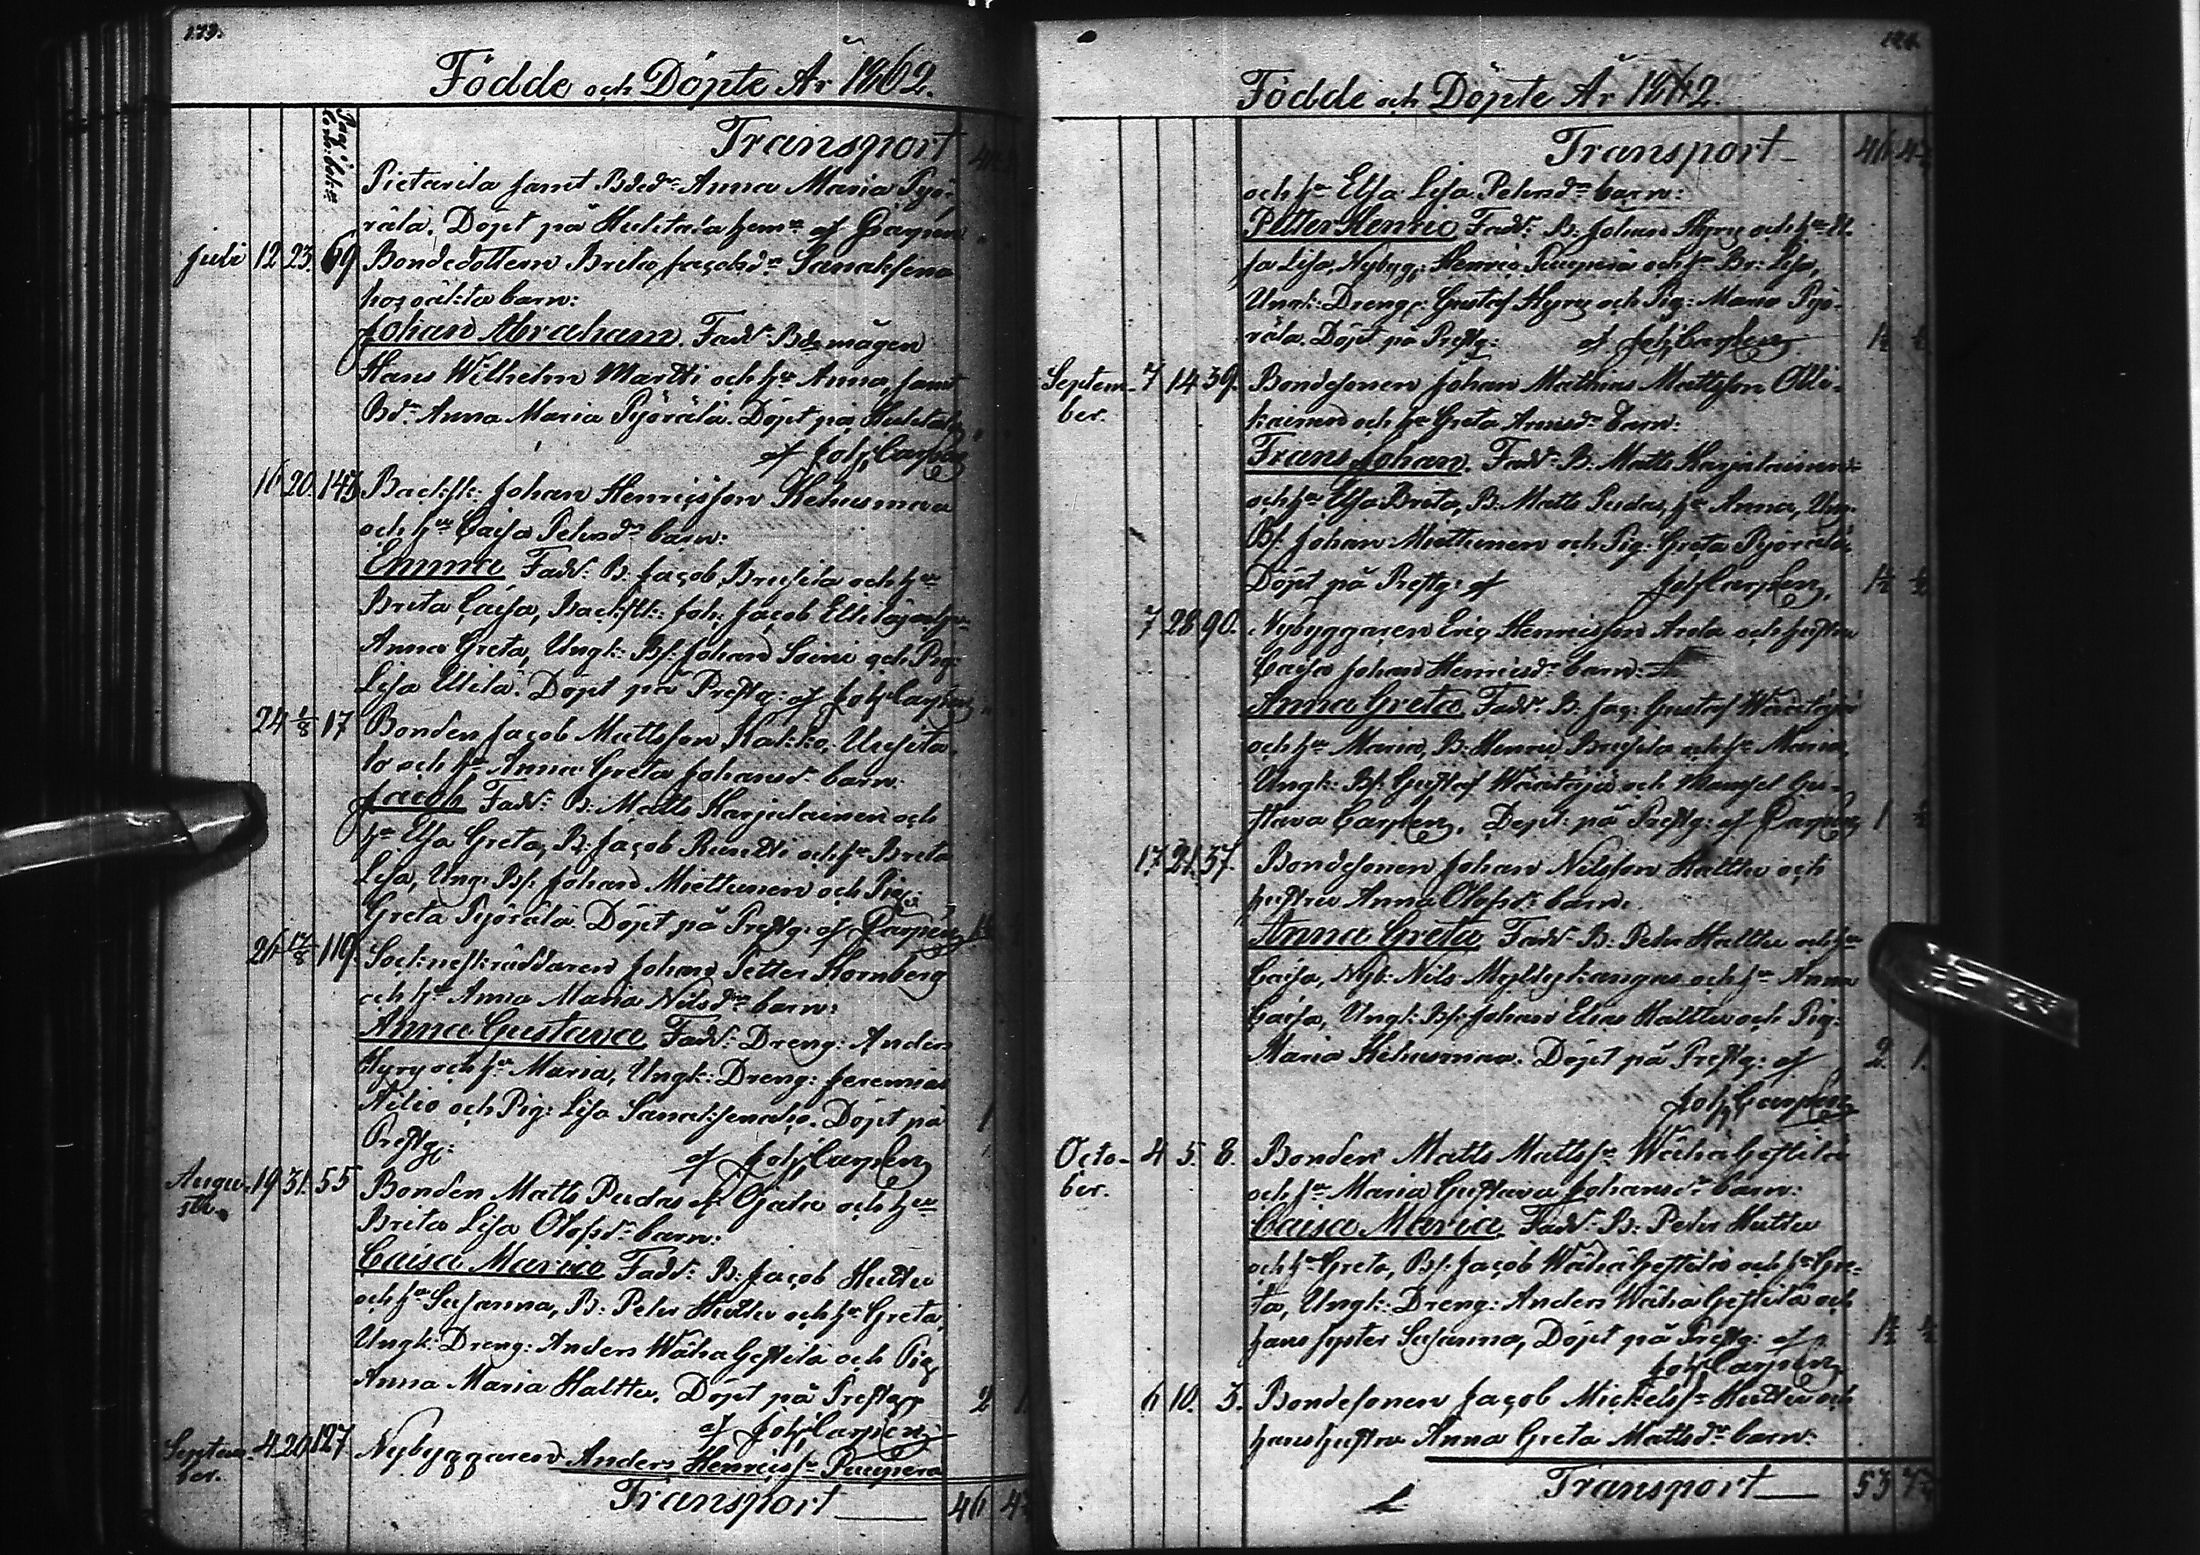 173.
Födde och Döpte År 1862.
Pag. i
Com: bok:n
Transport
Pietarila samt Bded:r Anna Maria Pyö-
rälä. Döpt på Huhtala hem:n af Carpen
Juli 12 23. 69 Bondedottern Brita Jacobsd:r Sanaksena
hos oäkta barn:
Johan Abraham. Fadd: Bdemågen
Hans Wilhelm Martti och h:u Anna, samt
Bd:r Anna Maria Pyörälä. Döpt på Huhtala
af Joh Carpen
16 20. 143 Backst: Johan Henricsson Kehusmaa
och h:u Caisa Petersd:r barn:
Emma Fadd: B: Jacob Brusila och h:u
Brita Caisa, Backstk: Joh: Jacob
Anna Greta, Ungk: Bs: Johan Soini och Pig:
Lisa Ulila. Döpt på Prestg: af Joh Carpen
24 1/8 17 Bonden Jacob Mattsson Kakko
och h:u Anna Greta Johansd:r barn:
Jacob Fadd: B: Matts Karjalainen och
h:u Elsa Greta, B: Jacob Runtti och h:u Brita
Lisa, Ung: Bs: Johan Miettunen och Pig:
Greta Pyörälä. Döpt på Prestg: af Carpen
26 17/8 119. Sockneskräddaren Johan Petter Hornberg
och h:u Anna Maria Nilsd:r barn:
Anna Gustava, Fadd: Dreng: Anders
Hyry och h:u Maria, Ungk: Dreng: Jeremias
Ailio och Pig: Lisa Sanaksenaho. Döpt på
Prestg: af Joh Carpen
Augu- 19 31. 55 Bonden Matts Pudas af Ojala och h:u
sti. Brita Lisa Olofsd:r barn:
Caisa Maria Fadd: B: Jacob Huttu
och h:u Susanna, B: Peter Huttu och h:u Greta,
Ungk: Dreng: Anders Wäha Heftilä och Pig
Anna Maria Halttu. Döpt på Prestg 2
af Joh Carpen
Septem- 4 20 127 Nybyggaren Anders Henricss:n Puupera
ber.
Transport 46
Födde och Döpte År 1862.
Transport 46
och h:u Elsa Lisa Petersd:r barn:
Petter Henric Fadd: B: Johan Hyry och h:u El-
sa Lisa, Nybyg: Henric Puupera och h:u Br: Lisa,
Ungk: Dreng: Gustaf Hyry och Pig: Maria Pyö-
rälä. Döpt på Prestg: af Joh Carpen 1½ ½
Septem- 7 14 39. Bondesonen Johan Mathias Mattsson Olli-
ber. kainen och h:u Greta barn:
Frans Johan. Fadd: B: Matts Karjalainen
och h:u Elsa Brita, B: Matts Pudas, h:u Anna, Un-
Bs: Johan Miettunen och Pig: Greta Pyörälä
Döpt på Prestg: af Joh Carpen. 1½ ½
7 28 90. Nybyggaren Eric Henricsson Arola och hustru
Caisa Johan Henricsd:r barn:
Anna Greta, Fadd: B: Jac: Gustaf
och h:u Maria, B: Henric Brusila och h:u Maria,
Ungk: Bs: Gustaf och Mamsel Gu-
stava Carpen, Döpt på Prestg: af Carpen 1 ½
17 21 57. Bondesonen Johan Nilsson Halttu och
hustru Anna Olofsd:r barn.
Anna Greta Fadd: B: Peter Halttu och h:u
Caisa, Nyb: Nils Myllykangas och h:u Anna
Caisa, Ungk: Bs: Johan Elias Halttu och Pig:
Maria Kehusmaa. Döpt på Prestg: af 2. 1.
Joh Carpen
Octo- 4 5. 8. Bonden Matts Mattss:n Wäha Heftilä
ber. och h:u Maria Gustava Johansd:r barn:
Caisa Maria, Fadd: B: Peter Huttu
och h:u Greta, Bs: Jacob Wäha Heftilä och h:u Gre-
ta, Ungk: Dreng: Anders Wäha Heftilä och
hans syster Susanna, Döpt på Prestg: af 1½ ½
Joh Carpen
6 10. 3. Bondesonen Jacob Mickelss:n Huttu och
hans hustru Anna Greta Mattsd:r barn:
Transport 53